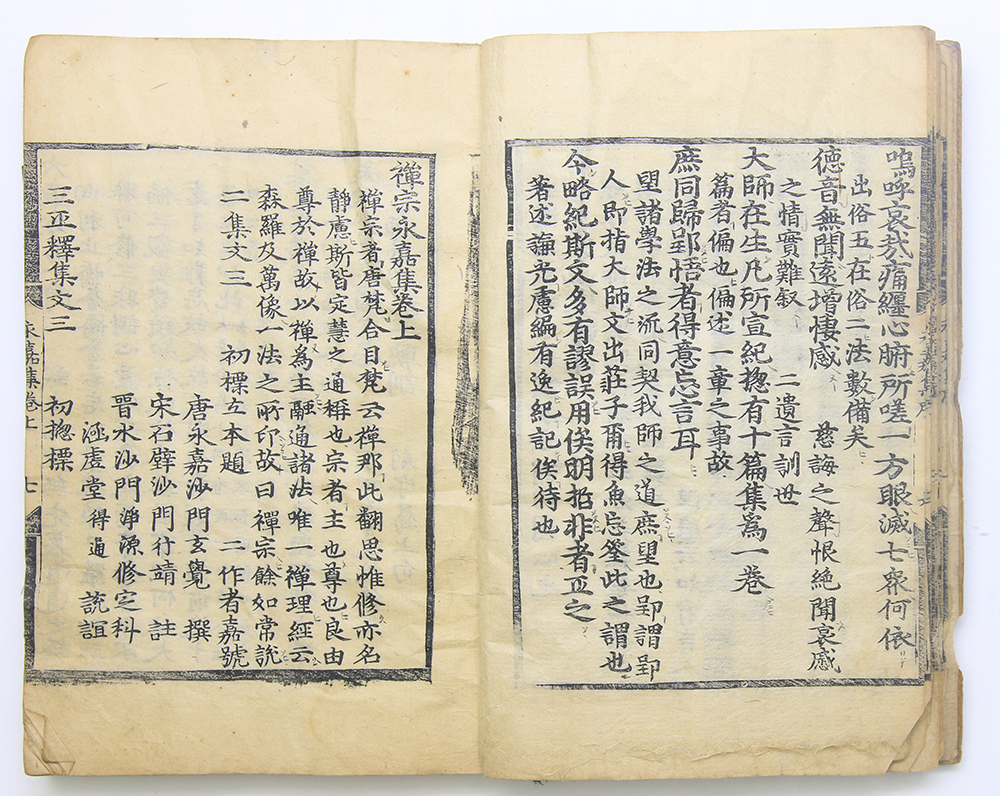 嗚呼哀哉痛纏心腑所嗟一方眼滅七衆何依
出俗五在俗二法數備矣
德音無聞遠增悽感 慈誨之聲恨絶聞哀感
之情實難叙 二遺言訓世
大師在生凡所宣紀揔有十篇集爲一卷
篇者偏也偏述一章之事故
庶同歸郢悟者得意忘言耳
望諸學法之流同契我師之道庶望也郢謂郢
人即指大師文出莊子爾得魚忘筌此之謂也
今略紀斯文多有謬誤用俟明招非者正之
著述謙光慮編有逸紀記俟待也
禪宗永嘉集卷上
禪宗者唐梵合目梵云禪那此翻思惟修亦名
靜慮斯皆定慧之通稱也宗者主也尊也良由
尊於禪故以禪為主融通諸法唯一禪理經云
森羅及萬像一法之所印故曰禪宗餘如常說
二集文三 初標立本題 二作者嘉號
唐永嘉沙門玄覺 撰
宋石壁沙門行靖 註
晉水沙門淨源修定科
涵虛堂得通說誼
三正釋集文三 初揔標
永嘉集卷上 七